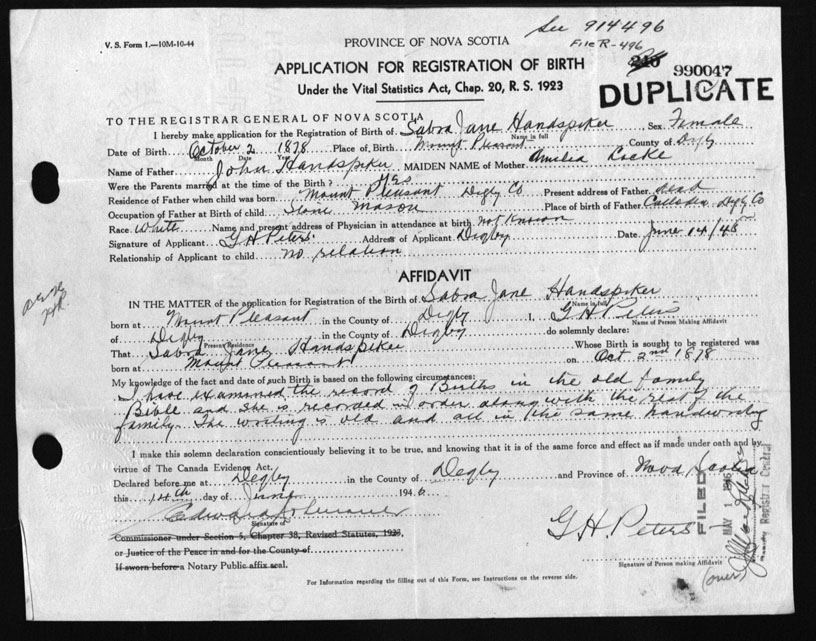 See 914496
V. S. Form 1.—10M-10-44
PROVINCE OF NOVA SCOTIA
File R-496
APPLICATION FOR REGISTRATION OF BIRTH
990047
Under the Vital Statistics Act, Chap. 20, R. S. 1923
DUPLICATE
TO THE REGISTRAR GENERAL OF NOVA SCOTIA
I hereby make application for the Registration of Birth of Sabra Jane Handspiker Sex Female
Name in full
Date of Birth October 2 1878 Place of Birth Mount Pleasant County of Digby
Month Date Year
Name of Father John Handspiker MAIDEN NAME of Mother Amelia Locke
Were the Parents married at the time of the Birth? Yes
Residence of Father when child was born Mount Pleasant Digby Co Present address of Father dead
Occupation of Father at Birth of child Stone Mason Place of birth of Father Digby Co
Race White Name and present address of Physician in attendance at birth not Known
Signature of Applicant G H Peters Address of Applicant Digby Date June 14/46
Relationship of Applicant to child no relation
AFFIDAVIT
IN THE MATTER of the application for Registration of the Birth of Sabra Jane Handspiker
Name in full
born at Mount Pleasant in the County of Digby I, G H Peters
Name of Person Making Affidavit
of Digby in the County of Digby do solemnly declare:
Present Residence
That Sabra Jane Handspiker Whose Birth is sought to be registered was
born at Mount Pleasant on Oct 2nd 1878
My knowledge of the fact and date of such Birth is based on the following circumstances:
I have examined the record of Births in the old family
Bible and she is recorded in order along with the rest of the
family. The writing is old and all in the same handwriting
I make this solemn declaration conscientiously believing it to be true, and knowing that it is of the same force and effect as if made under oath and by
virtue of The Canada Evidence Act.
Declared before me at Digby in the County of Digby and Province of Nova Scotia
this 14th day of June 1946
Edward
Signature of
G H Peters
Commissioner under Section 5, Chapter 38, Revised Statutes, 1923,
or Justice of the Peace in and for the County of
Signature of Person making Affidavit
If sworn before a Notary Public affix seal.
(over)
For Information regarding the filling out of this Form, see Instructions on the reverse side.
FILED
MAY 1
Registrar General